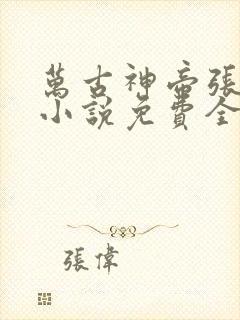 萬古神帝張
小說免費全
張偉